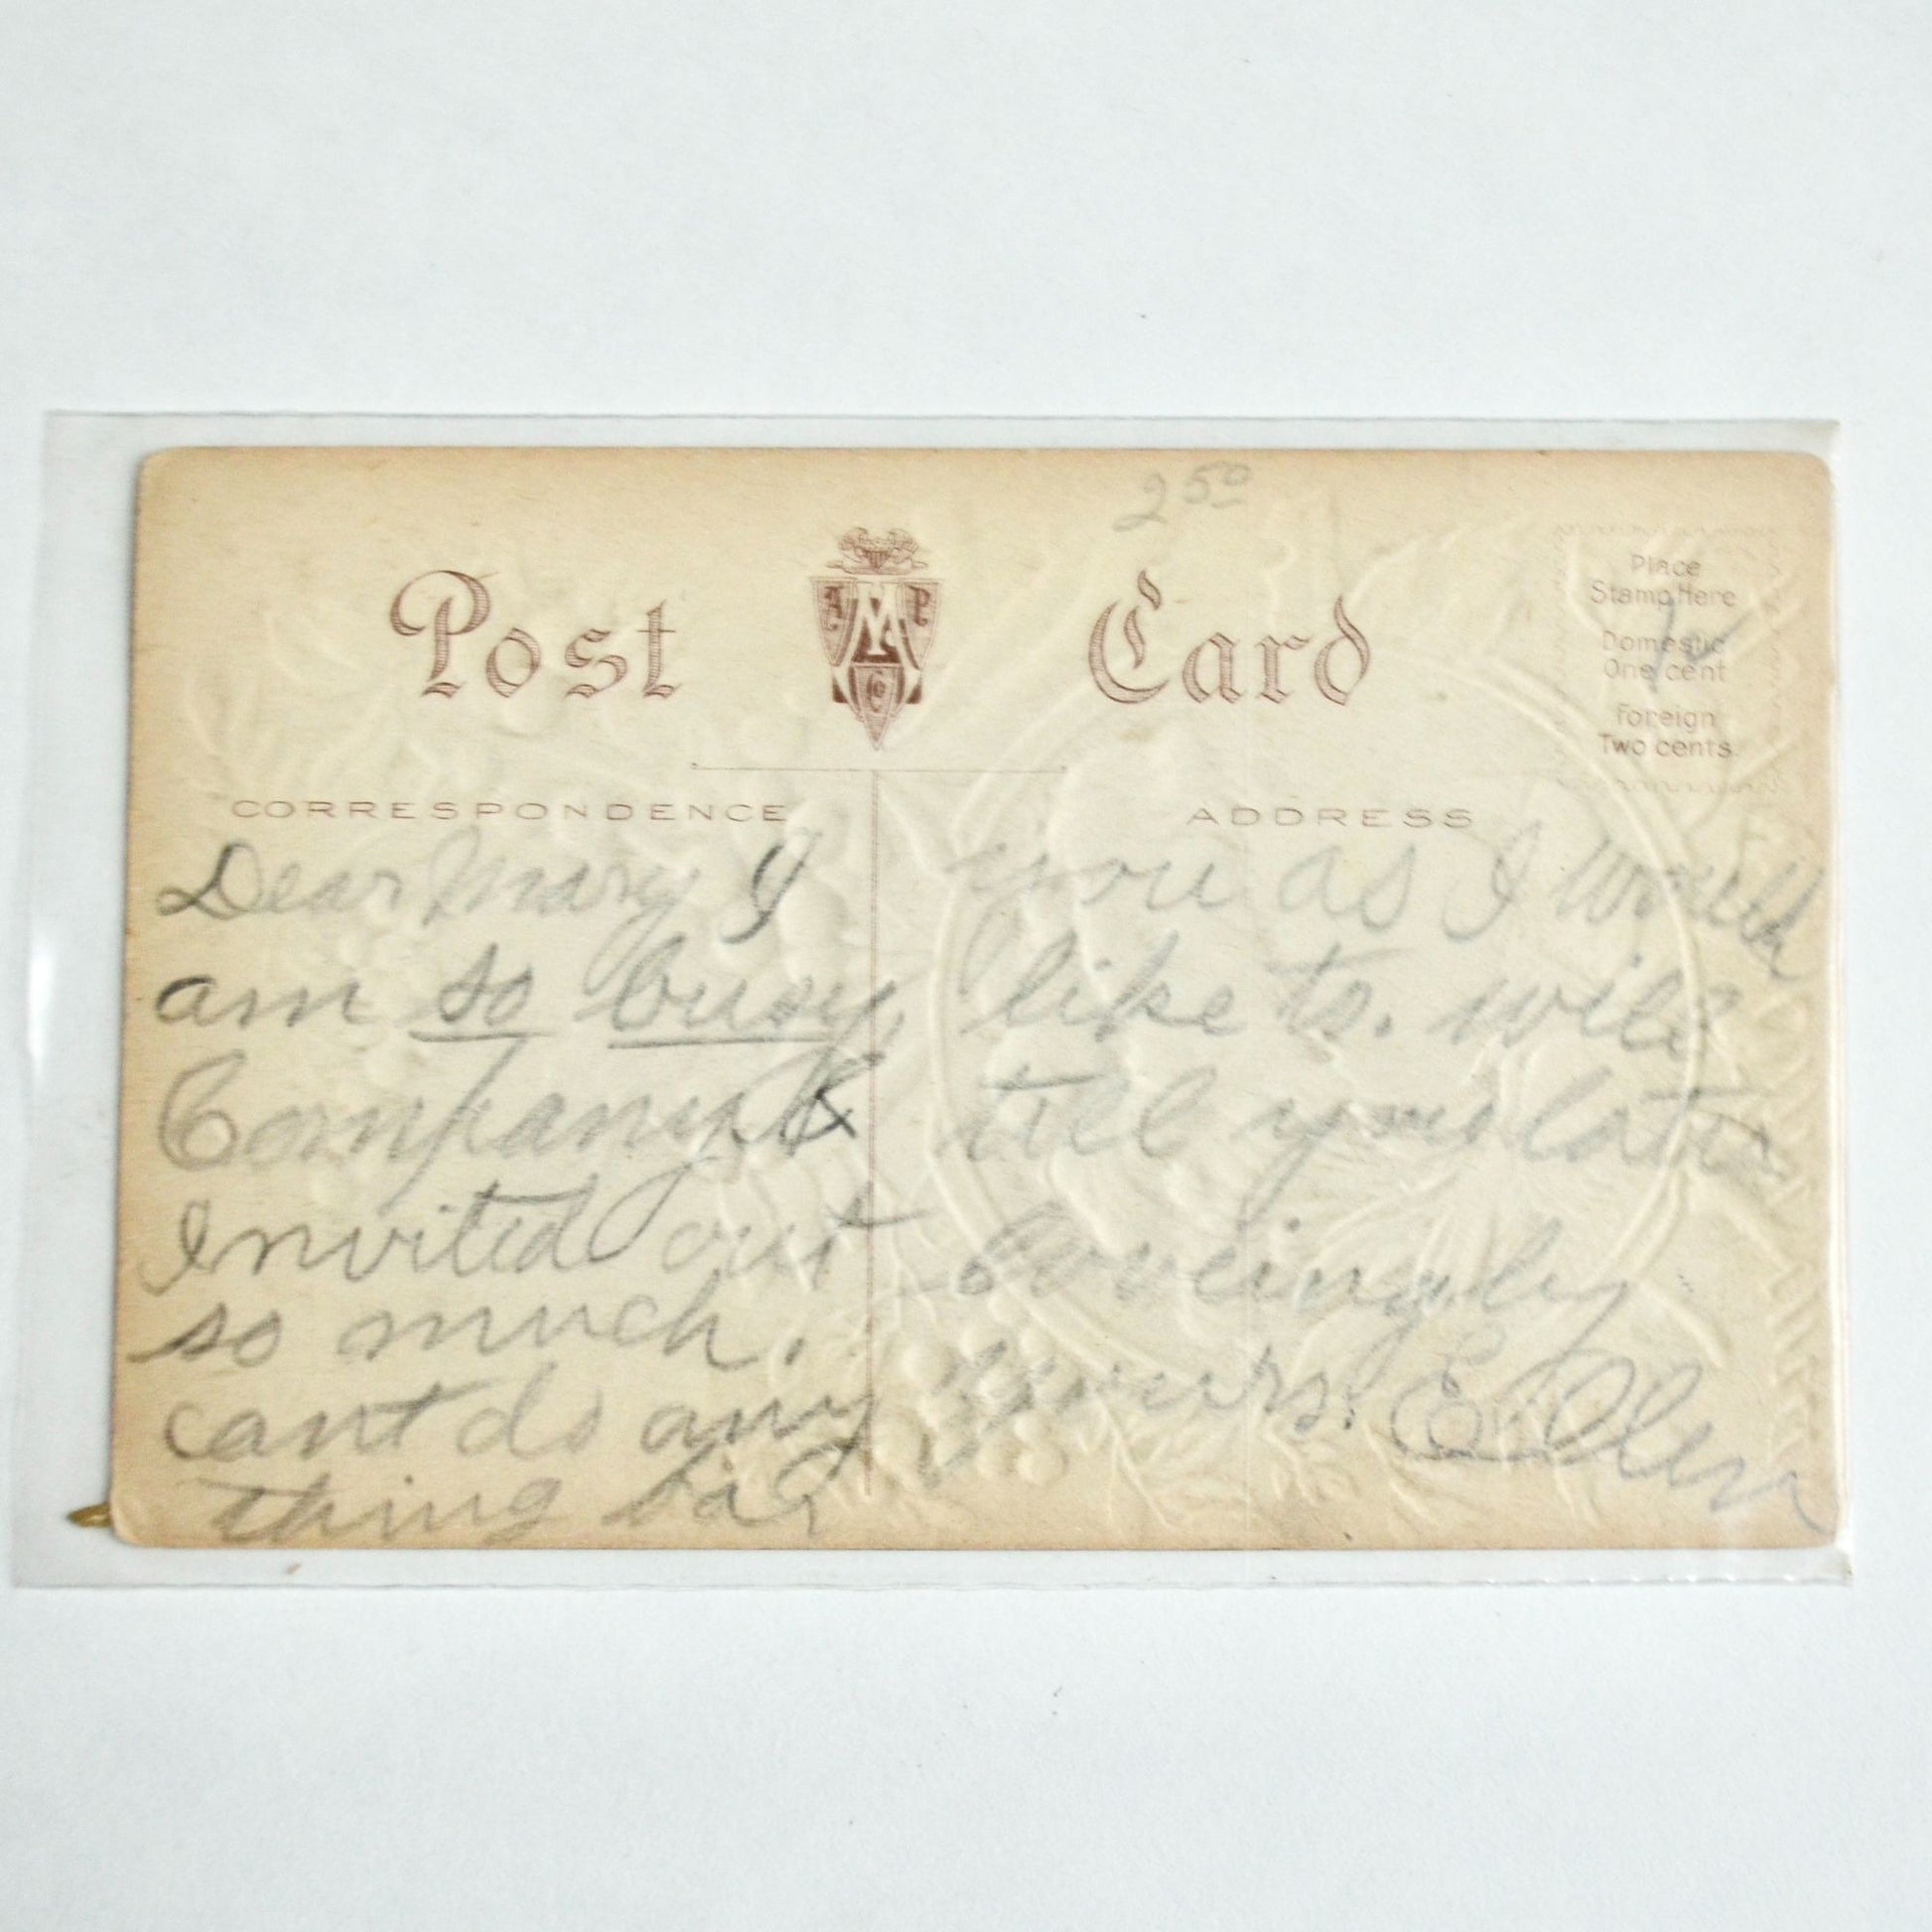 2 50
Post Card
A M P
Co
Place
Stamp Here
Domestic
One cent
Foreign
Two cents
CORRESPONDENCE
Dear Mary I
am so busy,
Company &
Invited out
so much.
cant do any
thing
ADDRESS
you as I would
like to. will
till you later
Loveingly
yours. Ellen